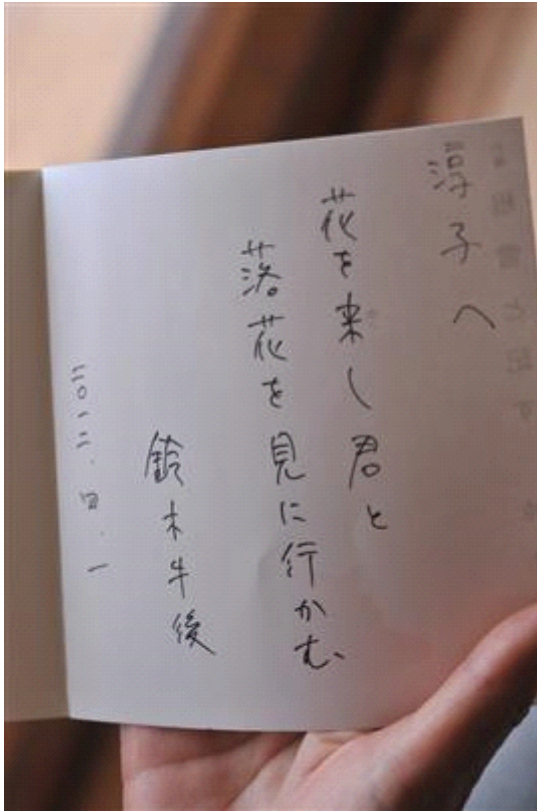 淳子へ
花を来し君と
落花を見に行かむ
鈴木牛後
二〇一二.四.一